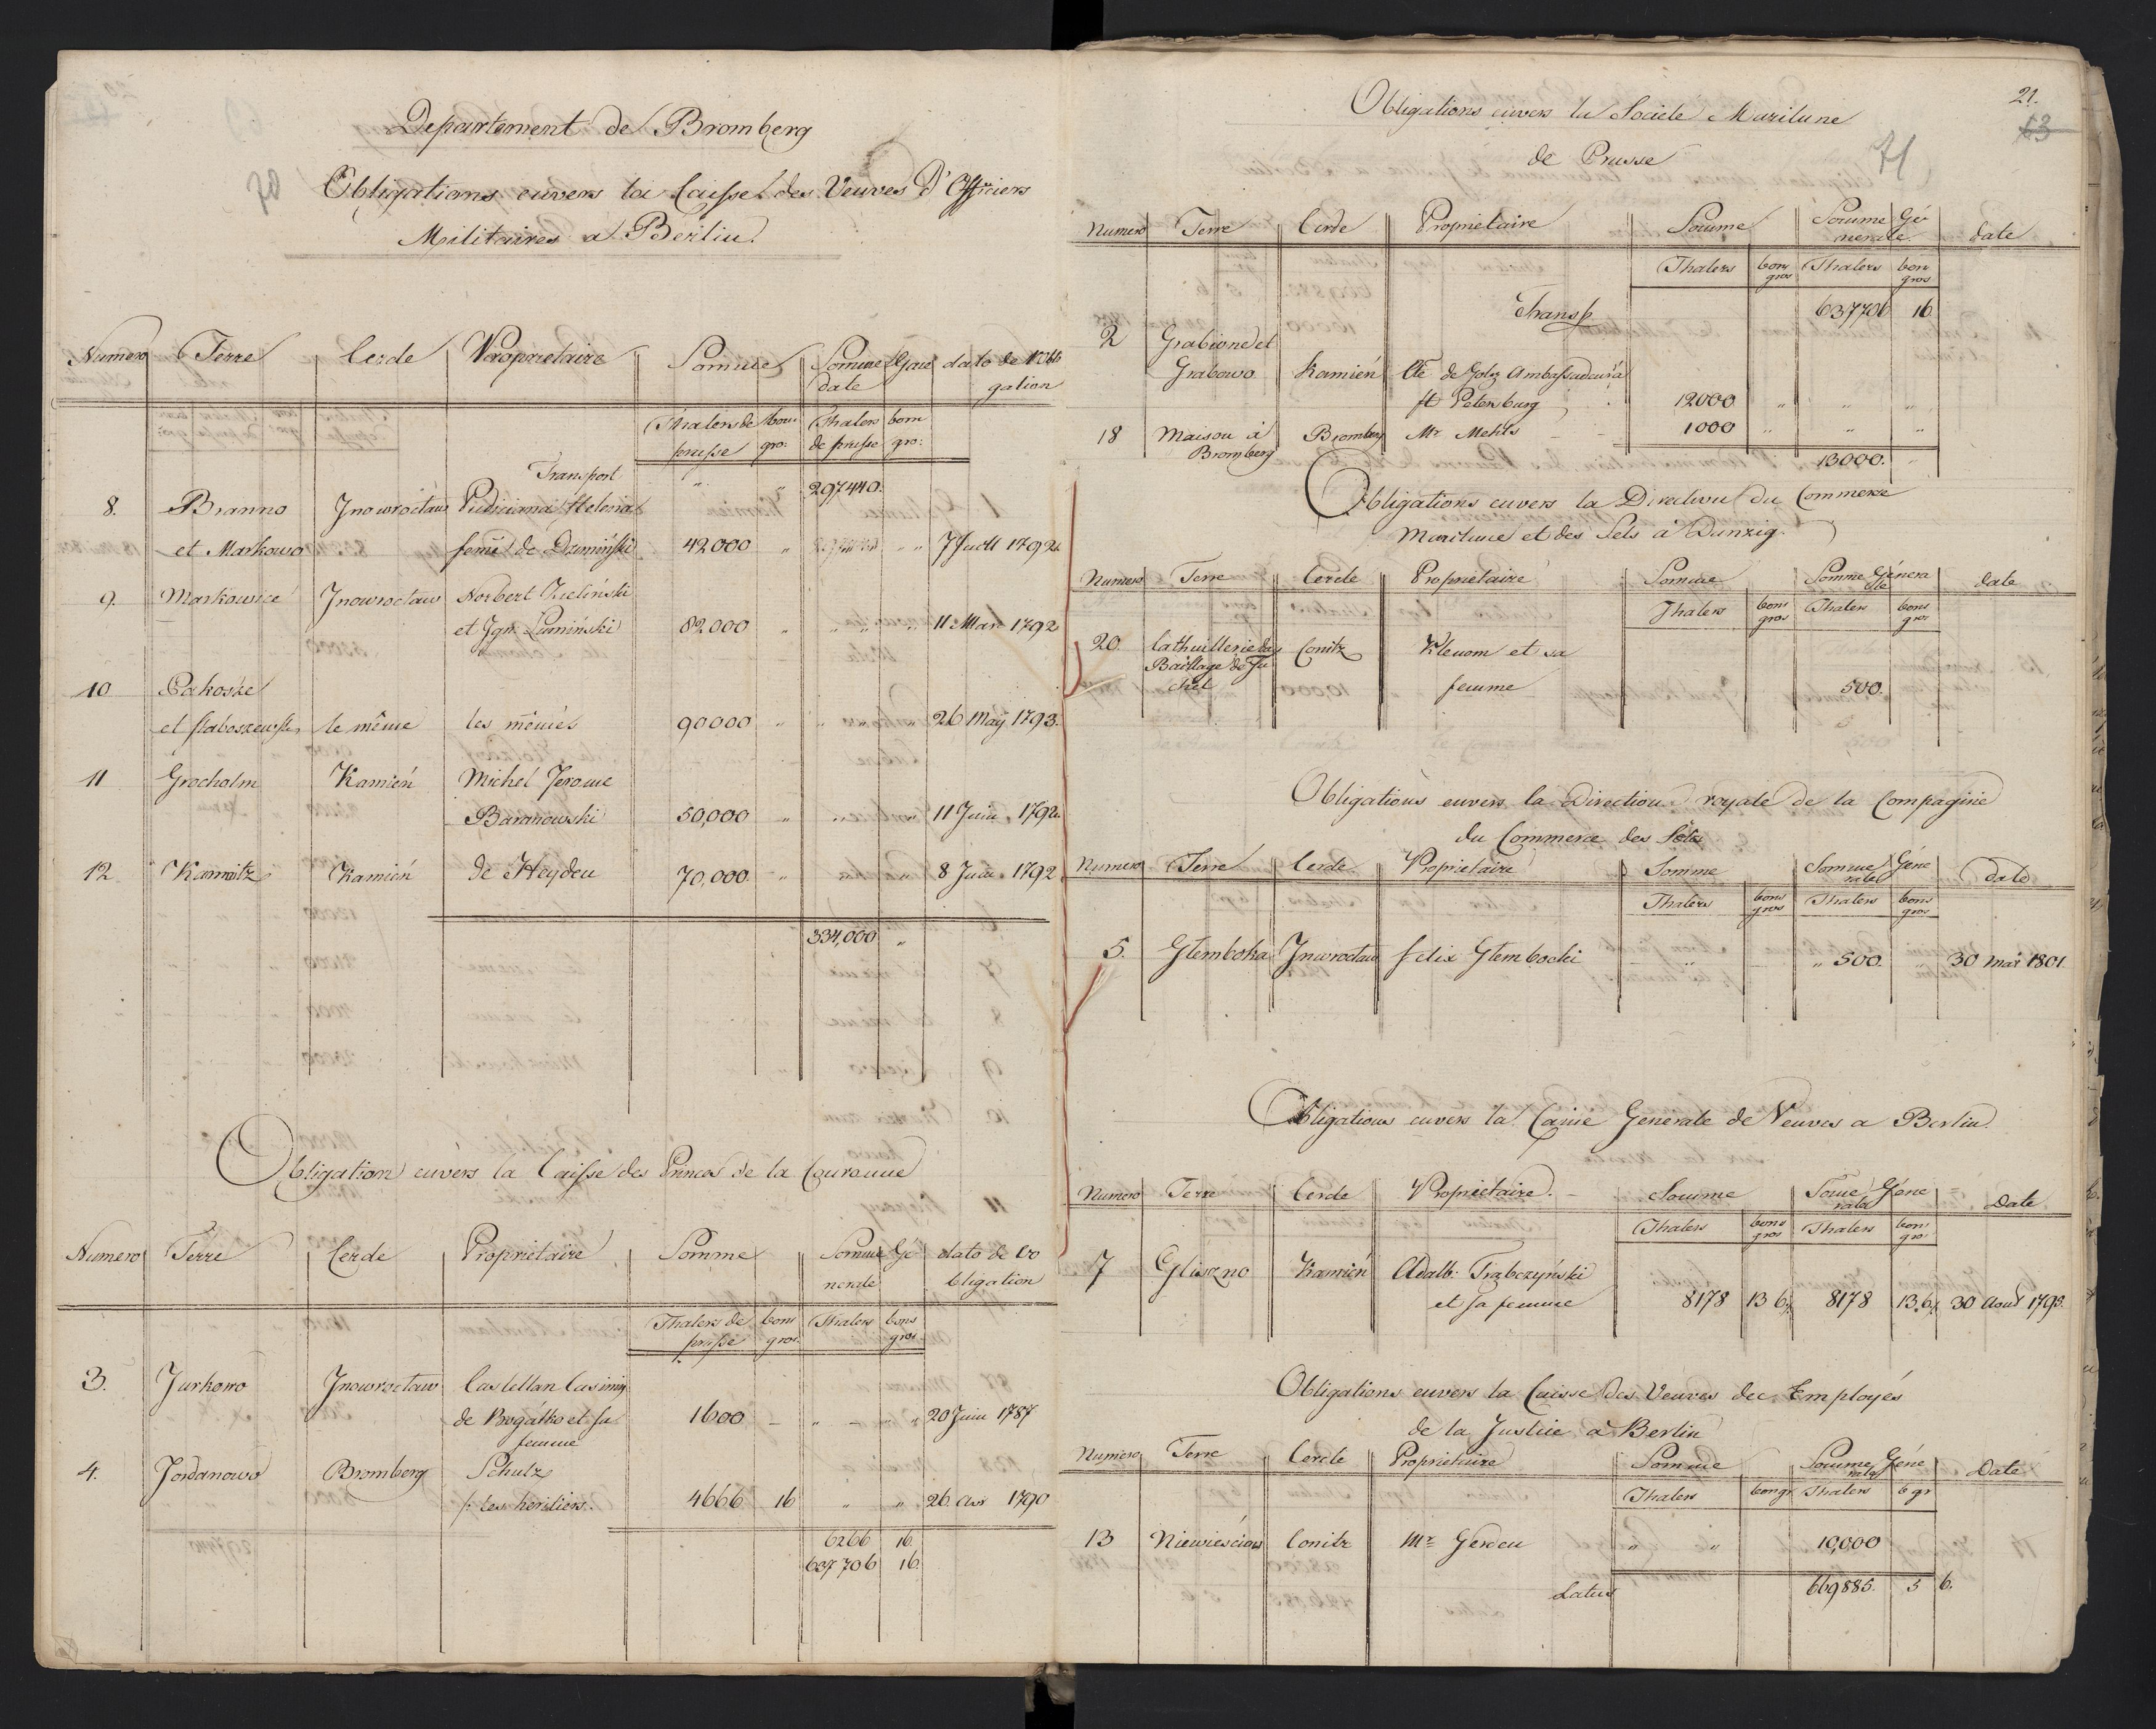 Departement de Bromberg
70
Obligations envers la Caisse des Veuves d'Officiers
Militaires a Berlin
Numero Terre Cercle Proprietaire Somme Somme Gene date de l'Obli
gation
Thalers de prusse bons gro: Thalers de prusse bons gro:
Transport " " 297440.
8. Branno Jnowrocław Helena
et Markowo femé de Dzminski 42000 " " " 7 Juill 1792
9. Markowice Jnowrocław Norbert Zielinski
et Jgn. Luminski 82000 " " " 11 Mars 1792
10 Pakoske
et le même les mêmes 90000 " " 26 May 1793.
11 Grocholin Kamień Michel Jerome
Baranowski 50,000 " " 11 Juin 1792.
12 Kamień de Heyden 70,000 " 8 Juin 1792
334,000 "
Obligation envers la Caisse des Princes de la Couronne
Numero Terre Cercle Proprietaire Somme Somme Gé nerale date de l'o
bligation
Thalers de prusse bons gros. Thalers bons gros
3. Jurkowo Jnowrocław Castellan Casimir
de Bogatko et sa 1600 — " — " 20 Juin 1787
femme
4. Jordanowo Bromberg Schulz
/: les heritiers. 4666 16 " " 26 Avr 1790
6266 16
637706 16.
Obligations envers la Societe Maritime
21.
63
de Prusse
71
Numero Terre Cercle Proprietaire Somme Somme Gé nerale. date
Thalers bons gros Thalers bons gros
Transp 637706 16
2 Grabione et
Grabowo Kamień Cte de Golz Ambassadeur a
St Petersburg 12000 " " "
18 Maison à Bromberg Mr Mehls 1000 " " "
Bromberg 13000. "
Obligations envers la Direction du Commerce
Maritime et des Sels à Danzig.
Numero Terre Cercle Proprietaire Somme Somme Génera le date
Thalers bons gros Thalers bons gros
20. la thuillerie du Conitz Klenom et sa
Baillage de Tu
chel femme 500.
Obligations envers la Direction royale de la Compagnie
du Commerce des Sels
Numero Terre Cercle Proprietaire Somme Somme Géne rale date
Thalers bons gros Thalers bons gros
5. Glemboka Jnwrocław Felix Glembocki — " — " 500. " 30 Mar 1801
Obligations envers la Caisse Generale de Veuves a Berlin.
Numero Terre Cercle Proprietaire. Somme Some Géne rale Date
Thalers bons gros Thalers bons gro
7 Gliszno Kamień Adalb. Trąbczyński
et sa femme 8178 13 6 8178 13.6 30 Aout 1793.
Obligations envers la Caisse des Veuves des Employés
de la Justice a Berlin
Numero Terre Cercle Proprietaire Somme Somme Géne rale Date
Thalers bon gr Thalers b gr
13 Conitz Mr Gerden " " 10,000
Latus 669885. 5 6.